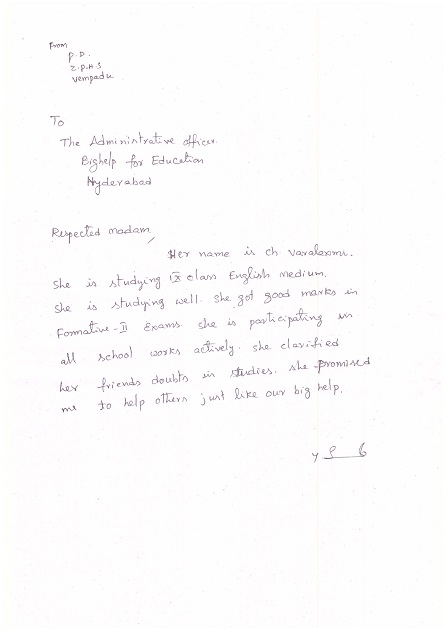 From
P.D.
Z.P.H.S
Vempadu
To
The Administrative officer.
Bighelp for Education
Hyderabad
Respected madam,
Her name is ch varalaxmi.
She is studying IX class English medium.
She is studying well. She got good marks in
Formative-II Exams. She is participating in
all school works actively. She clarified
her friends doubts in studies. She promised
me to help others just like our big help.